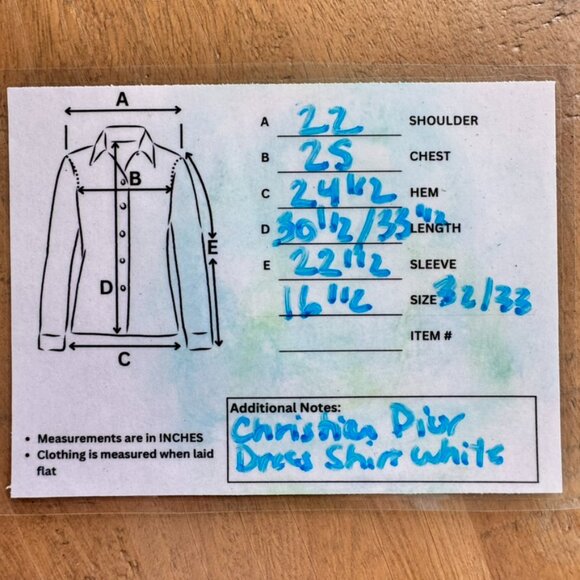 A
B
D
E
C
A 22 SHOULDER
B 25 CHEST
C 24 1/2 HEM
D 30 1/2 / 33 1/2 LENGTH
E 22 1/2 SLEEVE
16 1/2 SIZE 32/33
ITEM #
• Measurements are in INCHES
• Clothing is measured when laid
flat
Additional Notes:
Christian Dior
Dress Shirt White